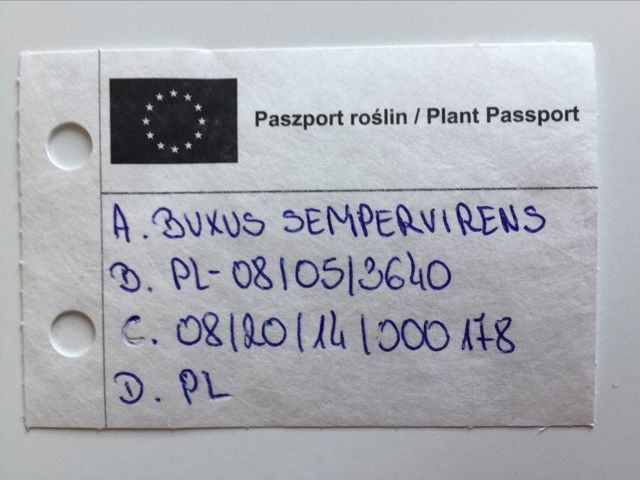 Paszport roślin / Plant Passport
A. BUXUS SEMPERVIRENS
B. PL-08/05/3640
C. 08/20/14/000178
D. PL